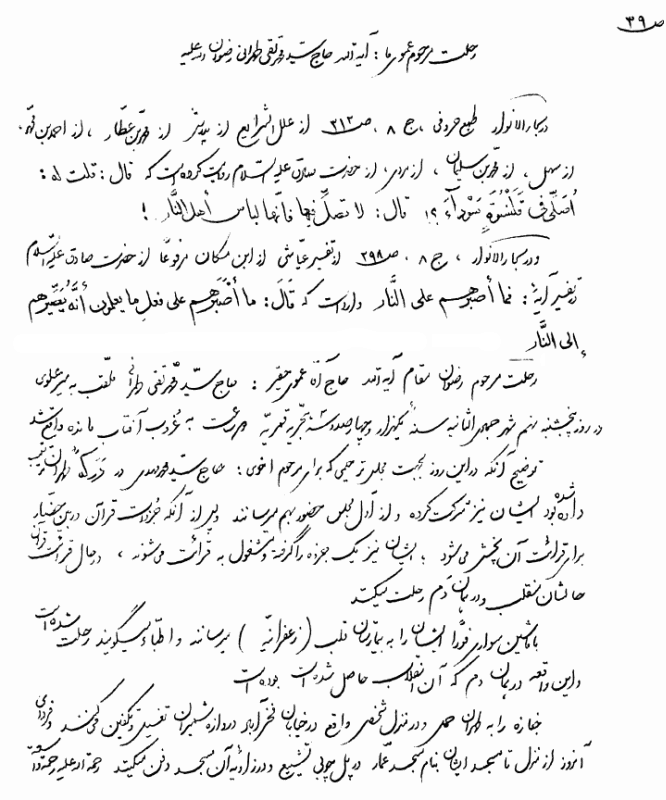 ص ٣٩
رحلت مرحوم عموی ما: آیة الله حاج سید محمد تقی طهرانی رضوان الله علیه
در بحار الانوار طبع حروفی، ج ٨، ص ٣١٢ از علل الشرایع از پدرش از محمد بن عطّار، از احمد بن
از سهل، از محمد بن سلیمان، از مردی، از حضرت صادق علیه السلام روایت کرده است که قال: قلت له:
اُصَلّی فی قَلَنْسُوَةٍ سَوْدآءَ؟! قال: لا تصلّ فیها فانّها لباس أهل النّار!
و در بحار الانوار، ج ٨، ص ٢٩٨ از تفسیر عیّاشی از ابن مسکان مرفوعًا از حضرت صادق علیه السلام
در تفسیر آیۀ: فما أصبرهم علی النّار وارد است که قَالَ: ما أَصْبَرَهم علی فعلِ ما یعلمون أنّه یُصَیِّرهم
إلی النّار
رحلت مرحوم رضوان مقام آیة الله حاج آقا عموی حقیر: حاج سید محمد تقی طهرانی ملقب به میر علوی
در روز پنجشنبه نهم شهر جمادی الثانیه سنه یکهزار و چهارصد و هجریه قمریه به غروب آفتاب مانده واقع شد
توضیح آنکه در این روز بجهت مجلس ترحیمی که برای مرحوم اخوی: حاج سید محمد مهدی در طهران ترتیب
داده شده بود ایشان نیز شرکت کرده و از اول مجلس حضور بهم میرسانند و پس از آنکه جزوات قرآن در بین حضّار
برای قرائت آن پخش می‌شود؛ ایشان نیز یک جزوه را گرفته و مشغول به قرائت می‌شوند، در حال قرائت قرآن
حالشان منقلب و در همان دم رحلت میکنند
با ماشین سواری فورًا ایشان را به بیمارستان قلب (زعفرانیّه) میرسانند و اطبّاء میگویند رحلت شده است
و این واقعه در همان دم که آن انقلاب حاصل شده است بوده است
جنازه را به طهران حمل و در منزل شخصی واقع در خیابان فخرآباد دروازه شمیران تغسیل و تکفین می‌کنند و فردای
آنروز از منزل تا مسجد ایشان بنام مسجد عمّار در پل چوبی تشییع و در زاویه آن مسجد دفن میکنند رحمة الله علیه رحمةً